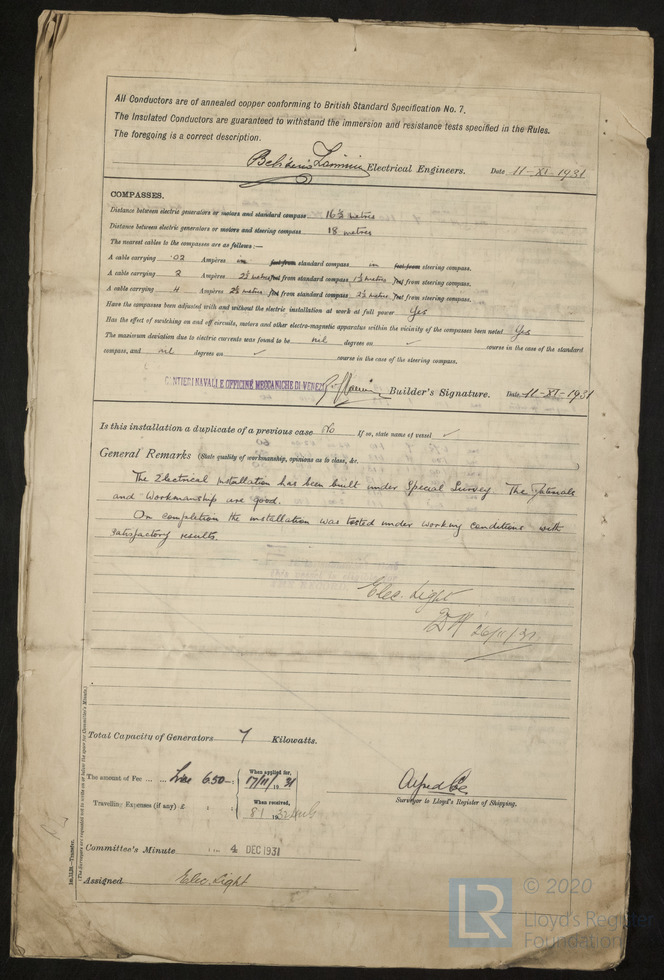 All Conductors are of annealed copper conforming to British Standard Specification No. 7.
The Insulated Conductors are guaranteed to withstand the immersion and resistance tests specified in the Rules.
The foregoing is a correct description.
Electrical Engineers. Date 11-XI-1931
COMPASSES.
Distance between electric generators or motors and standard compass 16½ metres
Distance between electric generators or motors and steering compass 18 metres
The nearest cables to the compasses are as follows:—
A cable carrying .02 Ampères in feet from standard compass in feet from steering compass.
A cable carrying 2 Ampères 2½ metres feet from standard compass 1½ metres feet from steering compass.
A cable carrying .4 Ampères 2½ metres feet from standard compass 2½ metres feet from steering compass.
Have the compasses been adjusted with and without the electric installation at work at full power Yes
Has the effect of switching on and off circuits, motors and other electro-magnetic apparatus within the vicinity of the compasses been noted Yes
The maximum deviation due to electric currents was found to be nil degrees on ✓ course in the case of the standard
compass, and nil degrees on ✓ course in the case of the steering compass.
CANTIERI NAVALI E OFFICINE MECCANICHE DI VENEZIA Builder's Signature. Date 11-XI-1931
Is this installation a duplicate of a previous case No If so, state name of vessel ✓
General Remarks (State quality of workmanship, opinions as to class, &c.
The Electrical Installation has been built under Special Survey The Materials
and Workmanship are good.
On completion the installation was tested under working conditions with
satisfactory results.
Elec. Light
26/11/31
Total Capacity of Generators 7 Kilowatts.
The amount of Fee ... ... Lire 650 : When applied for, 17/11/1931
Travelling Expenses (if any) £ : : When received, 8 1 1932
Alfred
Surveyor to Lloyd's Register of Shipping.
Committee's Minute 4 DEC 1931
Assigned Elec. Light
(The Surveyors are requested not to write on or below the space for Committee's Minute.)
Transfer.
LR
© 2020
Lloyd's Register
Foundation